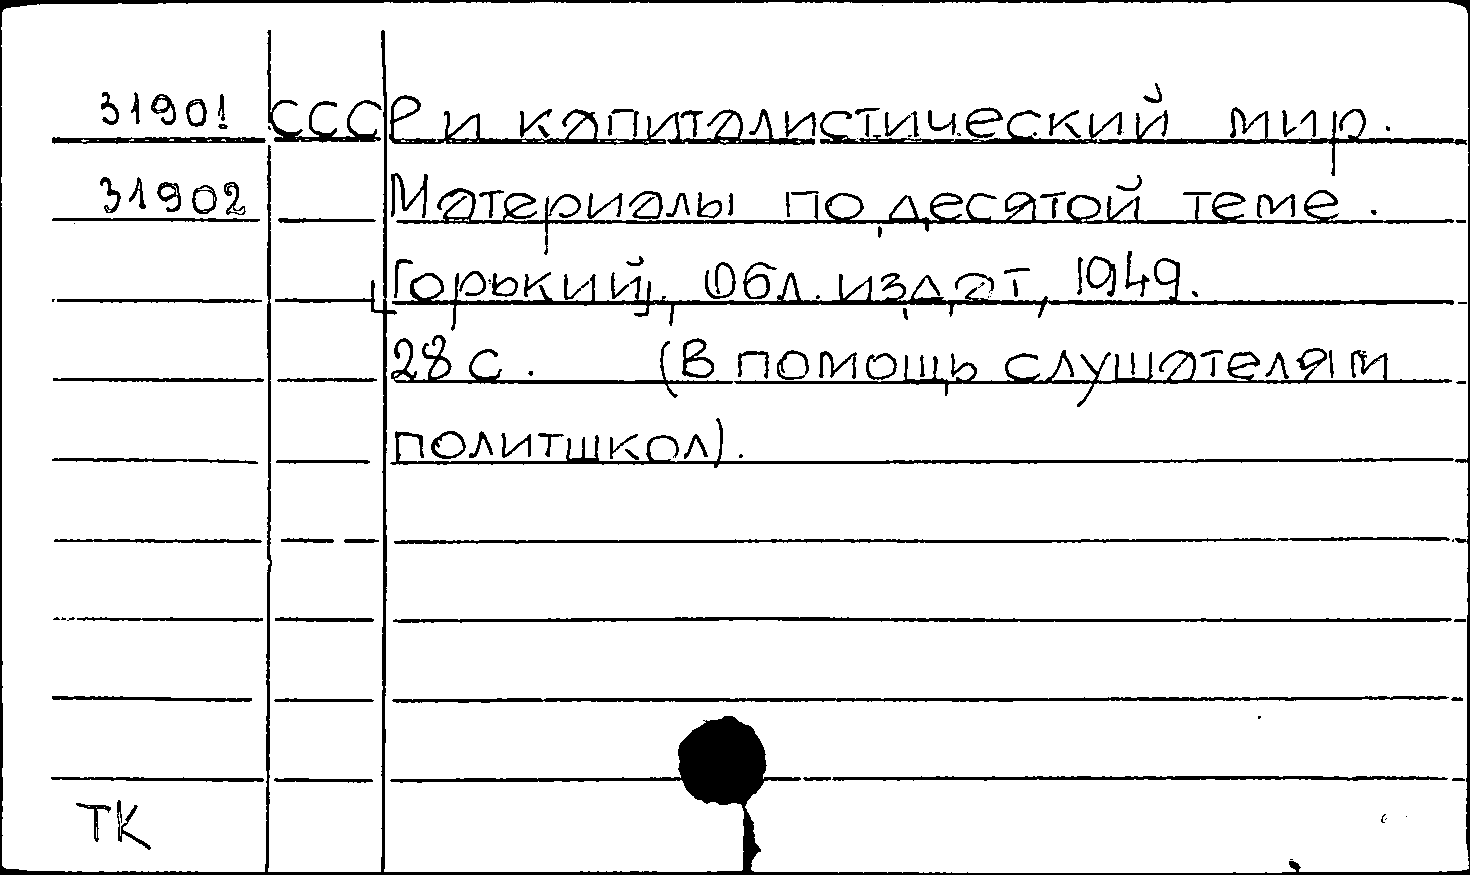 31901 СССР и капиталистический мир.
31902 Материалы по десятой теме.
[Горький], Обл. издат, 1949.
28 с. (В помощь слушателям
политшкол).
ТК